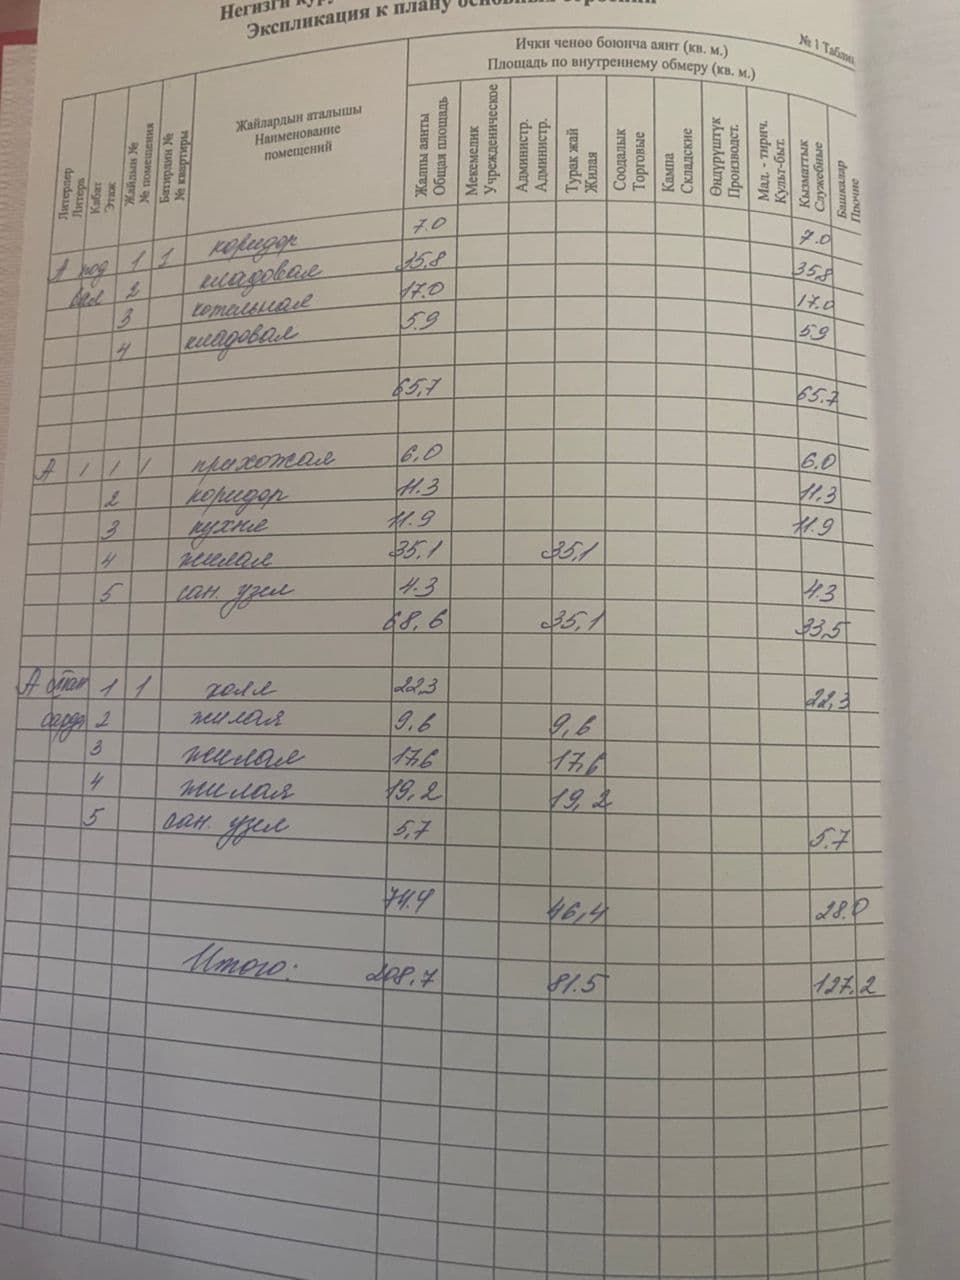 Негизги
Экспликация к плану
№ 1 Табли
Ички ченөө боюнча аянт (кв. м.)
Площадь по внутреннему обмеру (кв. м.)
Литерлер
Литера
Кабат
Этаж
Жайдын №
№ помещения
Батирдин №
№ квартиры
Жайлардын аталышы
Наименование
помещений
Жалпы аянты
Общая площадь
Мекемелик
Учрежденическое
Администр.
Администр.
Турак жай
Жилая
Соодалык
Торговые
Кампа
Складские
Өндүрүштүк
Производст.
Мад. - тирич.
Культ-быт.
Кызматтык
Служебные
Башкалар
Прочие
А под 1 1 коридор 7.0 7.0
вал 2 кладовая 35.8 35.8
3 котельная 17.0 17.0
4 кладовая 5.9 5.9
65,7 65.7
А 1 1 1 прихожая 6.0 6.0
2 коридор 11.3 11.3
3 кухня 11.9 11.9
4 жилая 35.1 35,1
5 сан. узел 4.3 4.3
68,6 35,1 33,5
А ман 1 1 холл 22,3 22,3
сарда 2 жилая 9,6 9,6
3 жилая 17,6 17,6
4 жилая 19,2 19,2
5 сан. узел 5,7 5.7
74.4 46,4 28.0
Итого: 208,7 81.5 127,2